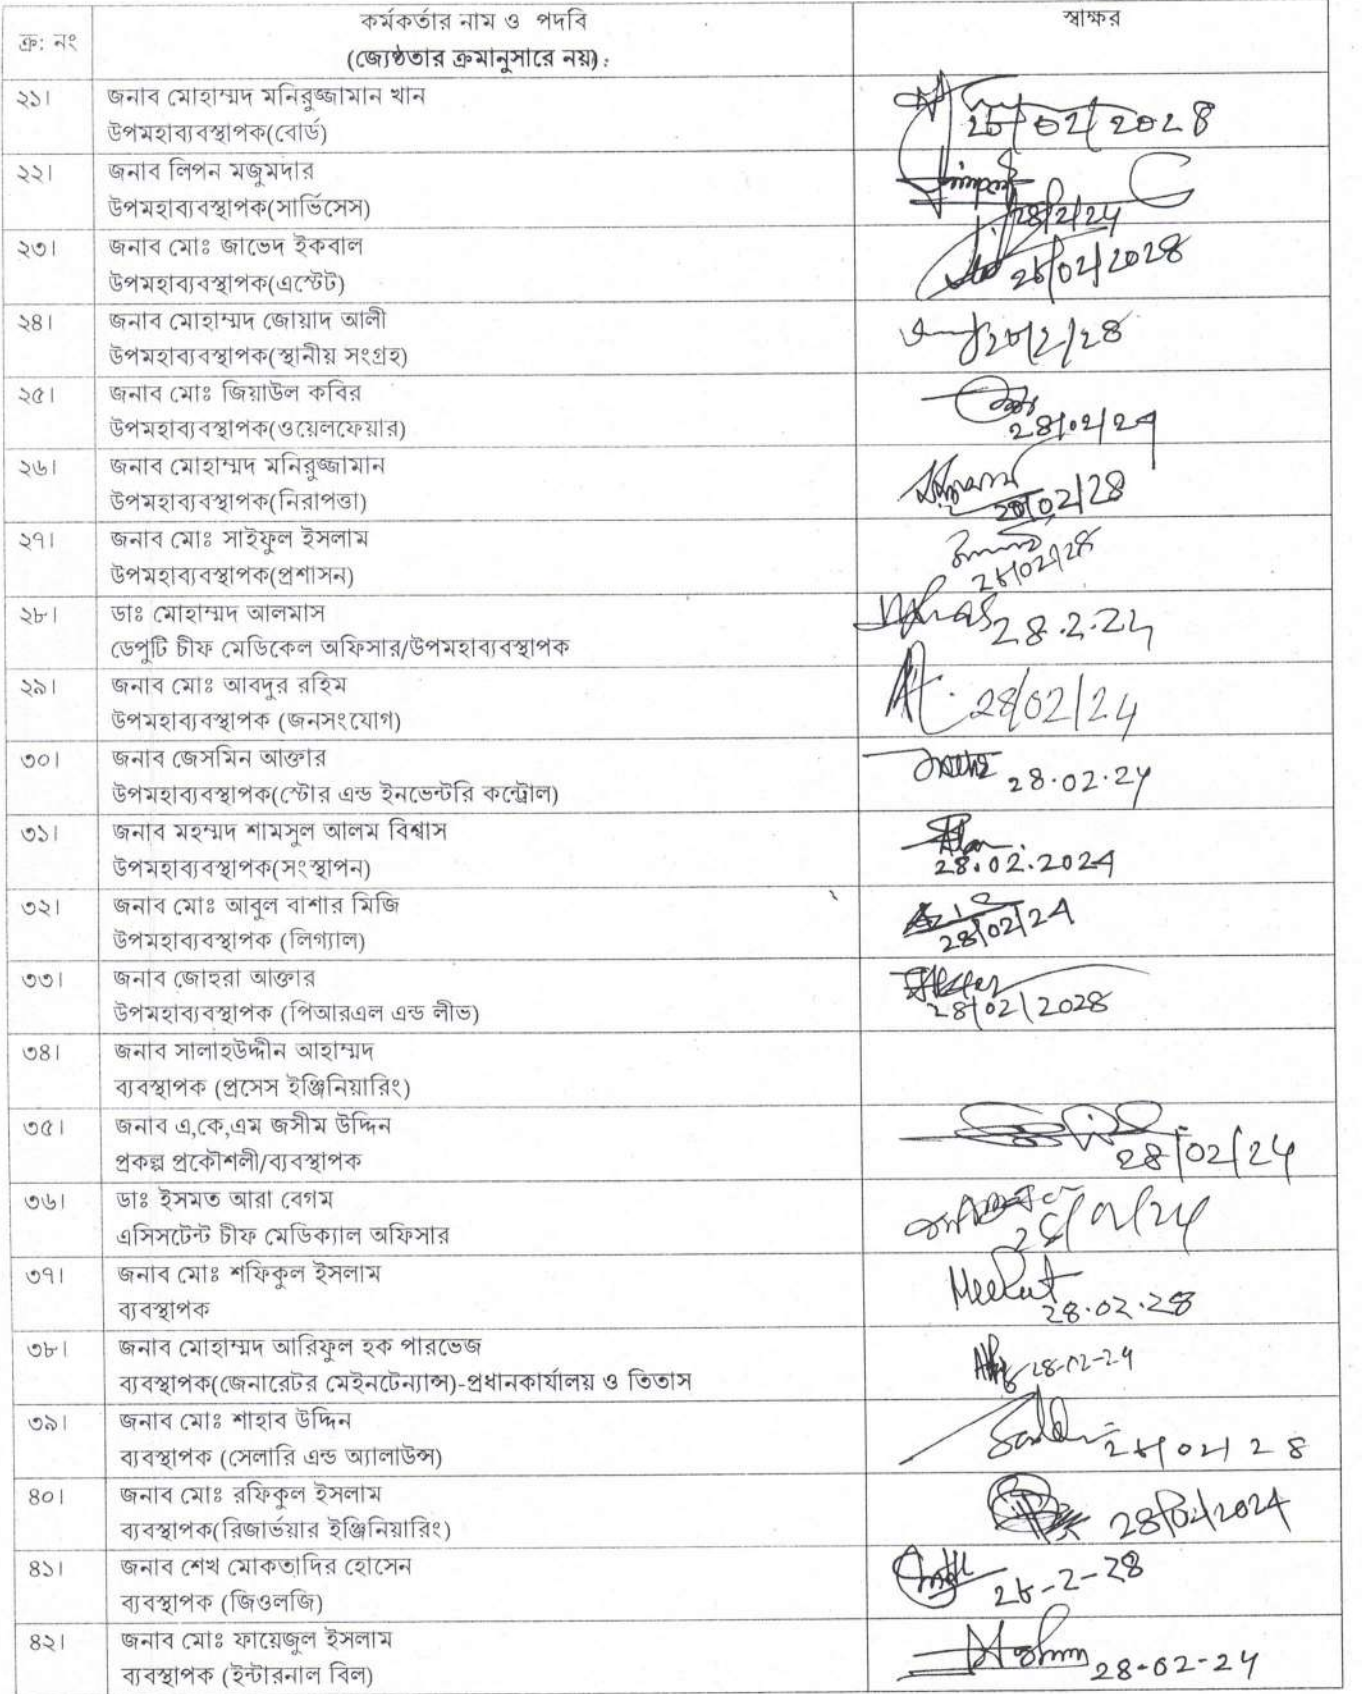 ক্র: নং
কর্মকর্তার নাম ও পদবি
(জ্যেষ্ঠতার ক্রমানুসারে নয়)
স্বাক্ষর
২১।
জনাব মোহাম্মদ মনিরুজ্জামান খান
উপমহাব্যবস্থাপক(বোর্ড)
২৮/০২/২০২৪
২২।
জনাব লিপন মজুমদার
উপমহাব্যবস্থাপক(সার্ভিসেস)
28/2/24
২৩।
জনাব মোঃ জাভেদ ইকবাল
উপমহাব্যবস্থাপক(এস্টেট)
২৮/০২/২০২৪
২৪।
জনাব মোহাম্মদ জোয়াদ আলী
উপমহাব্যবস্থাপক(স্থানীয় সংগ্রহ)
২৮/২/২৪
২৫।
জনাব মোঃ জিয়াউল কবির
উপমহাব্যবস্থাপক(ওয়েলফেয়ার)
28/02/24
২৬।
জনাব মোহাম্মদ মনিরুজ্জামান
উপমহাব্যবস্থাপক(নিরাপত্তা)
২৮/০২/২৪
২৭।
জনাব মোঃ সাইফুল ইসলাম
উপমহাব্যবস্থাপক(প্রশাসন)
২৮/০২/২৪
২৮।
ডাঃ মোহাম্মদ আলমাস
ডেপুটি চীফ মেডিকেল অফিসার/উপমহাব্যবস্থাপক
28.2.24
২৯।
জনাব মোঃ আবদুর রহিম
উপমহাব্যবস্থাপক (জনসংযোগ)
28/02/24
৩০।
জনাব জেসমিন আক্তার
উপমহাব্যবস্থাপক(স্টোর এন্ড ইনভেন্টরি কন্ট্রোল)
28.02.24
৩১।
জনাব মহম্মদ শামসুল আলম বিশ্বাস
উপমহাব্যবস্থাপক(সংস্থাপন)
28.02.2024
৩২।
জনাব মোঃ আবুল বাশার মিজি
উপমহাব্যবস্থাপক (লিগ্যাল)
28/02/24
৩৩।
জনাব জোহরা আক্তার
উপমহাব্যবস্থাপক (পিআরএল এন্ড লীভ)
২৮/০২/২০২৪
৩৪।
জনাব সালাহউদ্দীন আহাম্মদ
ব্যবস্থাপক (প্রসেস ইঞ্জিনিয়ারিং)
৩৫।
জনাব এ,কে,এম জসীম উদ্দিন
প্রকল্প প্রকৌশলী/ব্যবস্থাপক
28/02/24
৩৬।
ডাঃ ইসমত আরা বেগম
এসিসটেন্ট চীফ মেডিক্যাল অফিসার
৩৭।
জনাব মোঃ শফিকুল ইসলাম
ব্যবস্থাপক
২৮.০২.২৪
৩৮।
জনাব মোহাম্মদ আরিফুল হক পারভেজ
ব্যবস্থাপক(জেনারেটর মেইনটেন্যান্স)-প্রধানকার্যালয় ও তিতাস
28-02-24
৩৯।
জনাব মোঃ শাহাব উদ্দিন
ব্যবস্থাপক (সেলারি এন্ড অ্যালাউন্স)
২৮/০২/২৪
৪০।
জনাব মোঃ রফিকুল ইসলাম
ব্যবস্থাপক(রিজার্ভয়ার ইঞ্জিনিয়ারিং)
28/02/2024
৪১।
জনাব শেখ মোকতাদির হোসেন
ব্যবস্থাপক (জিওলজি)
২৮-২-২৪
৪২।
জনাব মোঃ ফায়েজুল ইসলাম
ব্যবস্থাপক (ইন্টারনাল বিল)
28-02-24